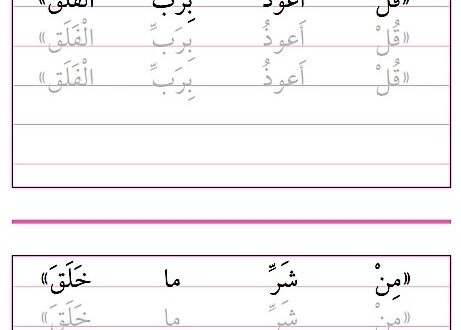 «قُلْ أَعوذُ بِرَبِّ الْفَلَقِ»
«قُلْ أَعوذُ بِرَبِّ الْفَلَقِ»
«قُلْ أَعوذُ بِرَبِّ الْفَلَقِ»
«مِنْ شَرِّ ما خَلَقَ»
«مِنْ شَرِّ ما خَلَقَ»